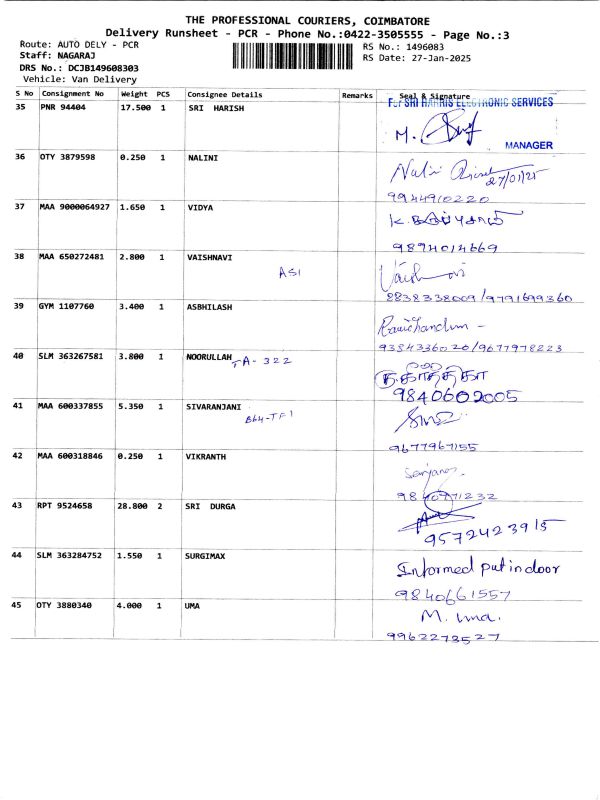 THE PROFESSIONAL COURIERS, COIMBATORE
Delivery Runsheet - PCR - Phone No.:0422-3505555 - Page No.:3
Route: AUTO DELY - PCR
RS No.: 1496083
Staff: NAGARAJ
RS Date: 27-Jan-2025
DRS No.: DCJB149608303
Vehicle: Van Delivery
S No Consignment No Weight PCS Consignee Details Remarks Seal & Signature
For SRI HARRIS ELECTRONIC SERVICES
35 PNR 94404 17.500 1 SRI HARISH
M.
MANAGER
36 OTY 3879598 0.250 1 NALINI
Nalini
27/01/25
9944910220
37 MAA 9000064927 1.650 1 VIDYA
9894014669
38 MAA 650272481 2.800 1 VAISHNAVI
ASI
Vaishnavi
8838338009/9791699360
39 GYM 1107760 3.400 1 ASBHILASH
Ravichandran -
9384336020/9677978223
40 SLM 363267581 3.800 1 NOORULLAH TA-322
9840602005
41 MAA 600337855 5.350 1 SIVARANJANI
B64-TF1
9677967155
42 MAA 600318846 0.250 1 VIKRANTH
9840971232
43 RPT 9524658 28.800 2 SRI DURGA
9572423915
44 SLM 363284752 1.550 1 SURGIMAX
Informed put in door
9840661557
45 OTY 3880340 4.000 1 UMA
M. Uma.
9962273527